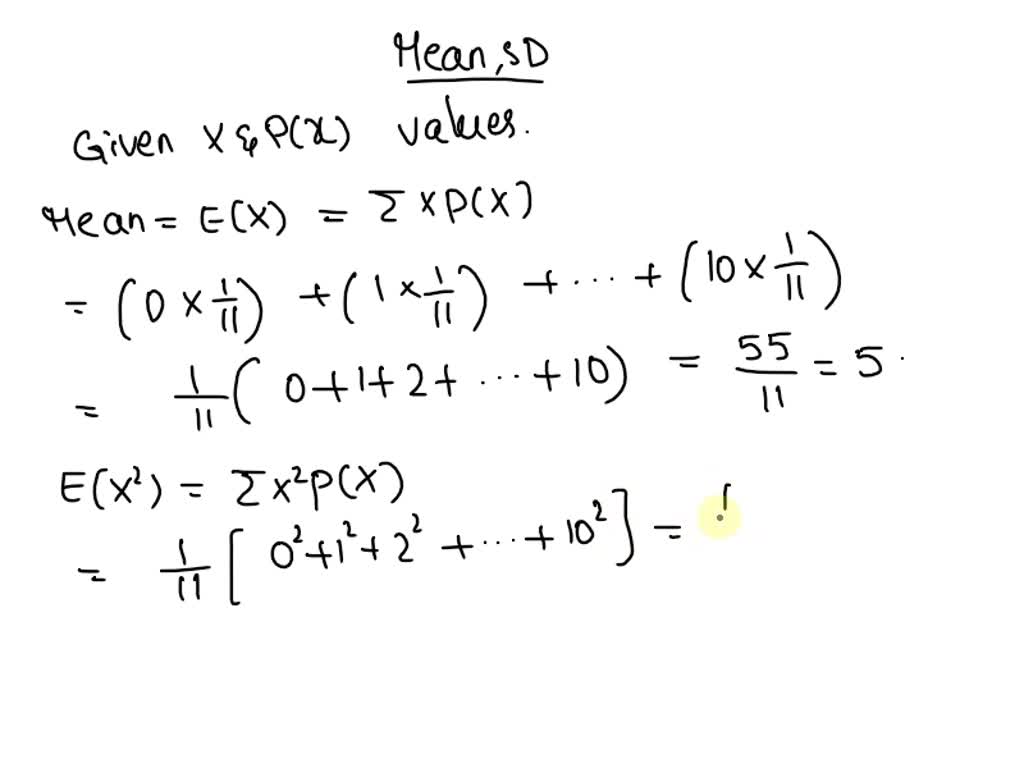 Mean, SD
Given X & P(x) values.
Mean = E(X) = Σ X P(X)
= (0 × 1/11) + (1 × 1/11) + ... + (10 × 1/11)
= 1/11 ( 0+1+2+ ... +10) = 55/11 = 5.
E(X²) = Σ X² P(X)
= 1/11 [ 0²+1²+2² + ... + 10² ] =